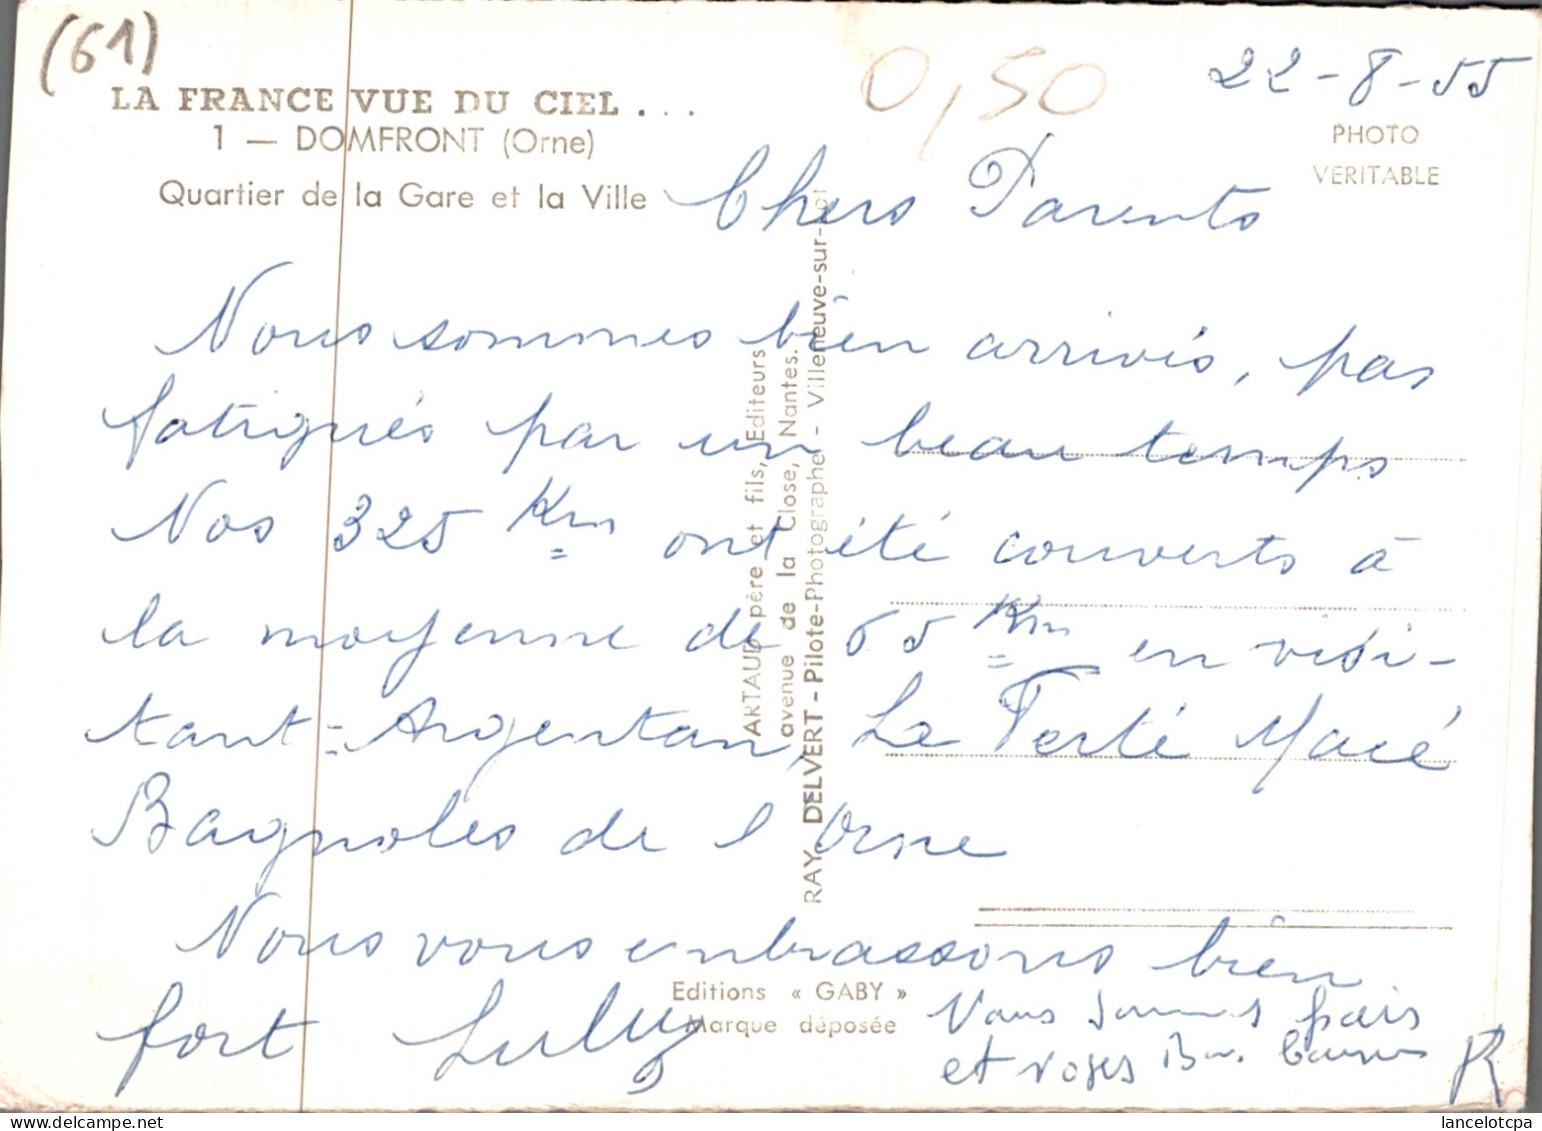 (61)
LA FRANCE VUE DU CIEL . . .
1 — DOMFRONT (Orne)
Quartier de la Gare et la Ville
0,50
22-8-55
PHOTO
VERITABLE
Chers Parents
Nous sommes bien arrivés, pas
fatigués par un beau temps
Nos 325 Km ont été couverts à
la moyenne de 65 Km en visi-
tant = Argentan, La Ferté Macé
Bagnoles de l'Orne
Nous vous embrassons bien
fort Luluz
Nous sommes frais
et roses Bons baisers
R
ARTAUD père et fils, Editeurs
avenue de la Close, Nantes.
RAY DELVERT - Pilote-Photographe - Villeneuve-sur-Lot
Editions « GABY »
Marque déposée
lancelotcpa